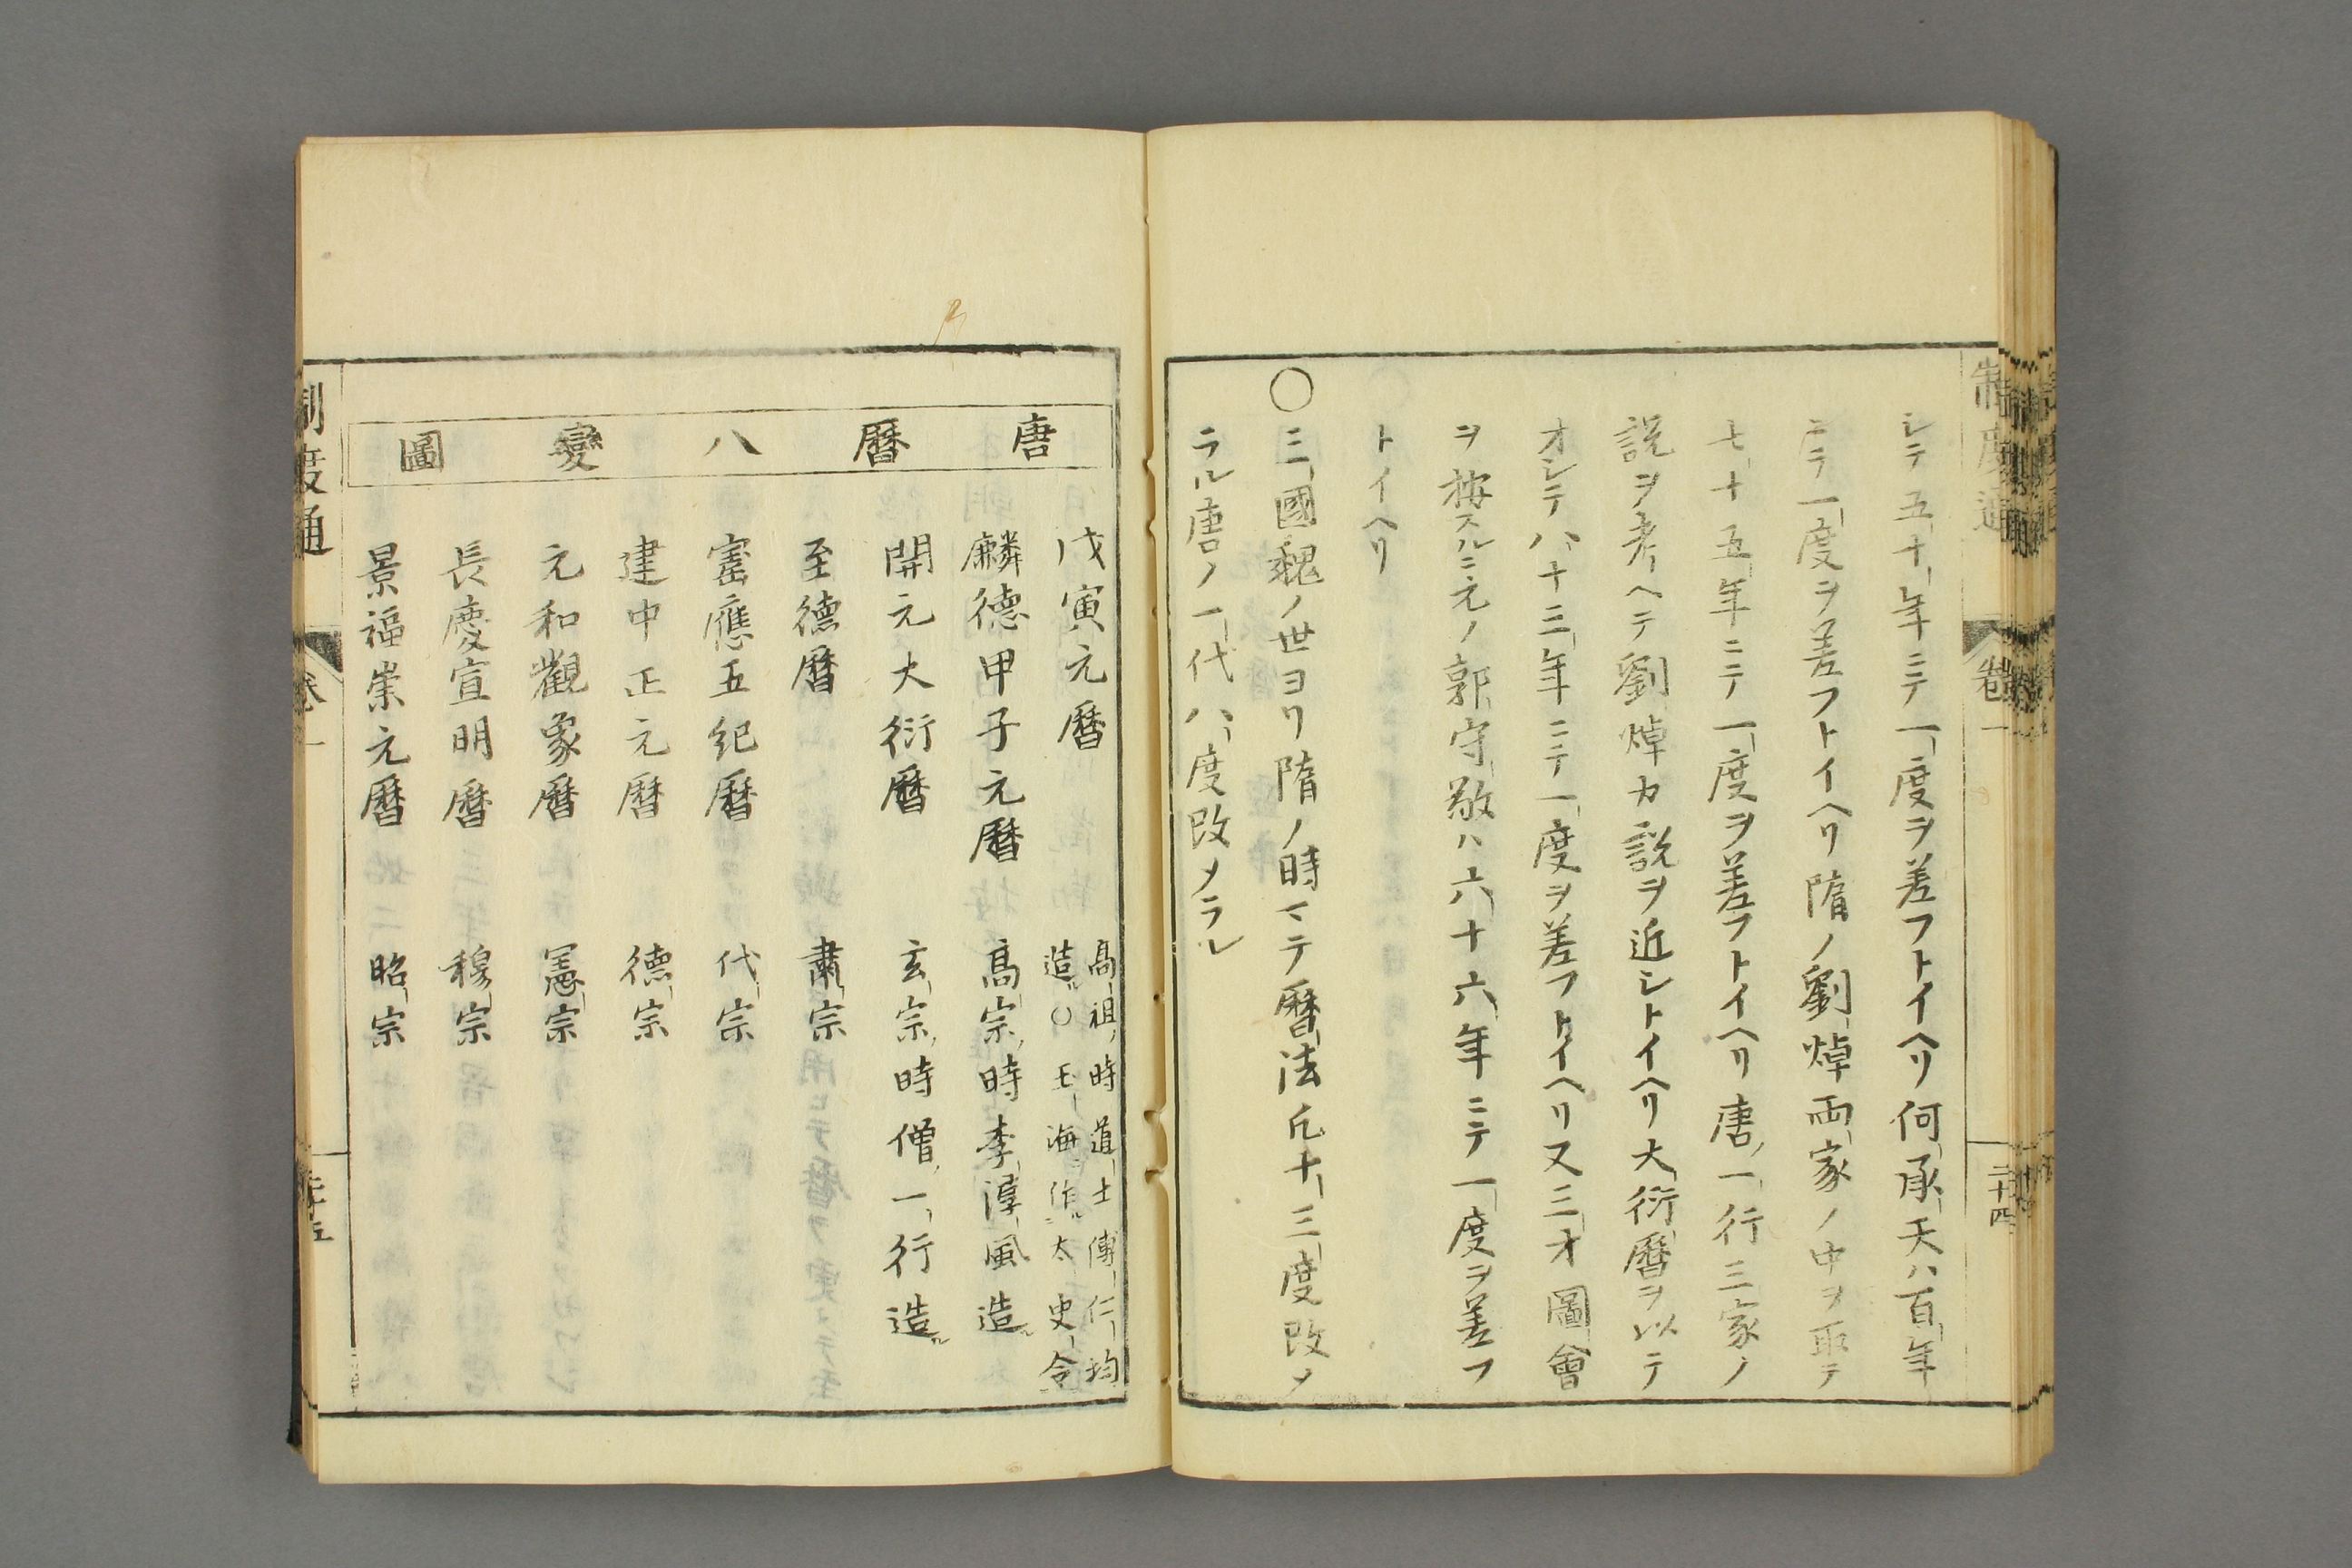 制度通 卷一 二十四
シテ五十年ニテ一度ヲ差フトイヘリ何承天ハ百年
ニテ一度ヲ差フトイヘリ隋ノ劉焯両家ノ中ヲ取テ
七十五年ニテ一度ヲ差フトイヘリ唐一行三家ノ
説ヲ考ヘテ劉焯カ説ヲ近シトイヘリ大衍曆ヲ以テ
オシテ八十三年ニテ一度ヲ差フトイヘリ又三才圖會
ヲ按スルニ元ノ郭守敬ハ六十六年ニテ一度ヲ差フ
トイヘリ
〇三國魏ノ世ヨリ隋ノ時マテ曆法凢十三度改メ
ラル唐ノ一代八度改メラル
唐曆八變圖
戊寅元曆 高祖時道士傅仁均
造〇玉海作太史令
麟德甲子元曆 高宗時李淳風造
開元大衍曆 玄宗時僧一行造
至德曆 肅宗
寳應五紀曆 代宗
建中正元曆 德宗
元和觀象曆 憲宗
長慶宣明曆 穆宗
景福崇元曆 昭宗
制度通 卷一 二十五